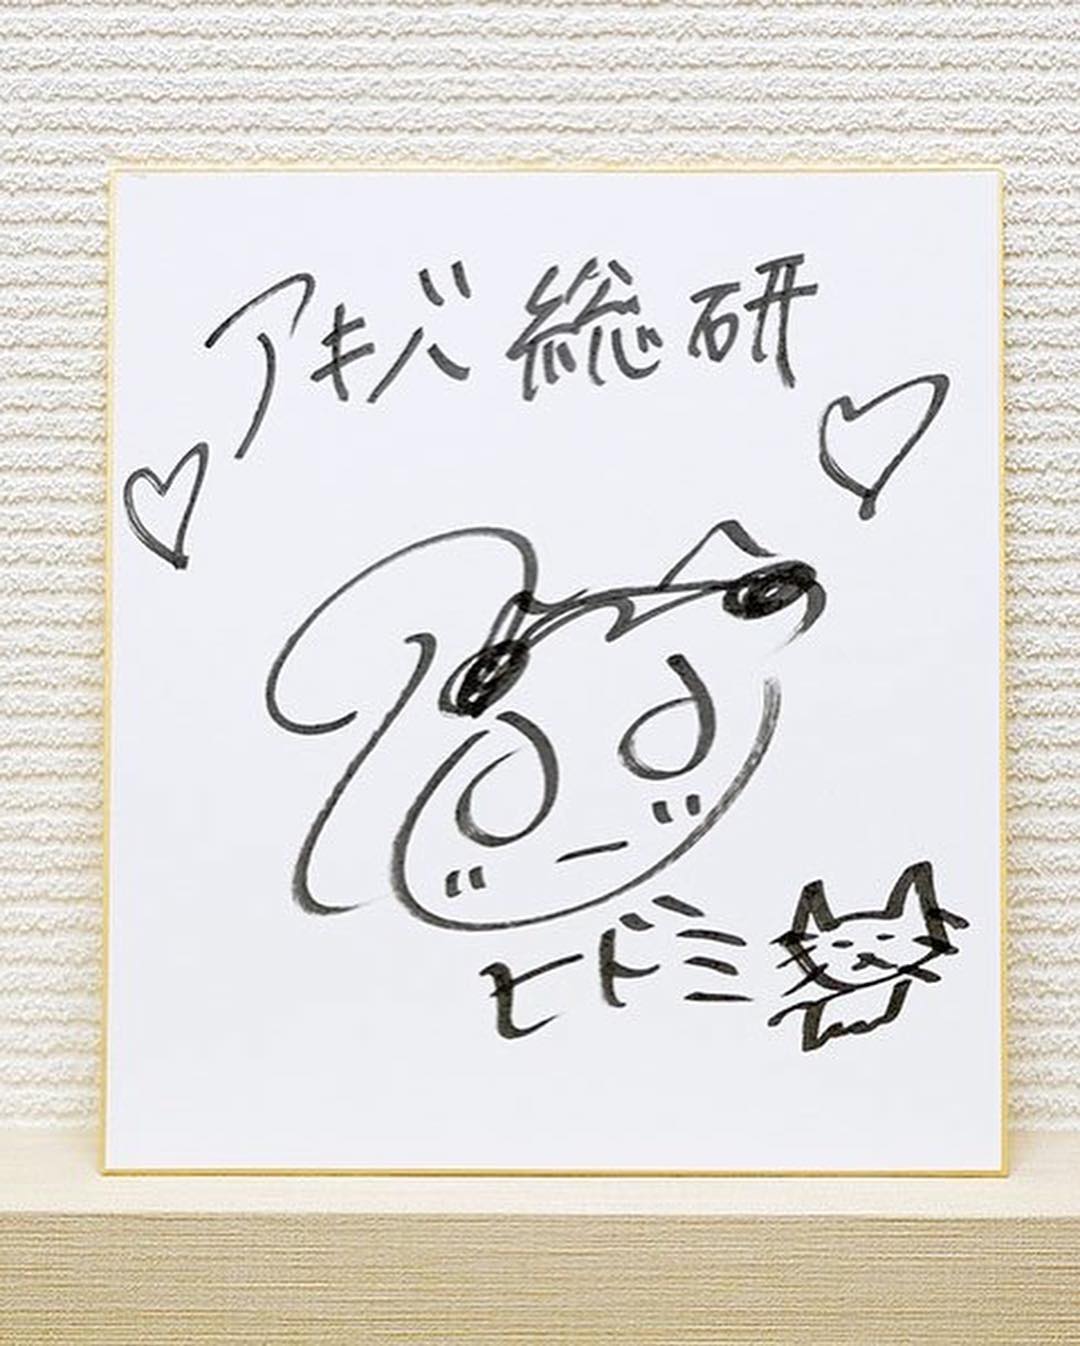 アキバ総研
ヒドミ